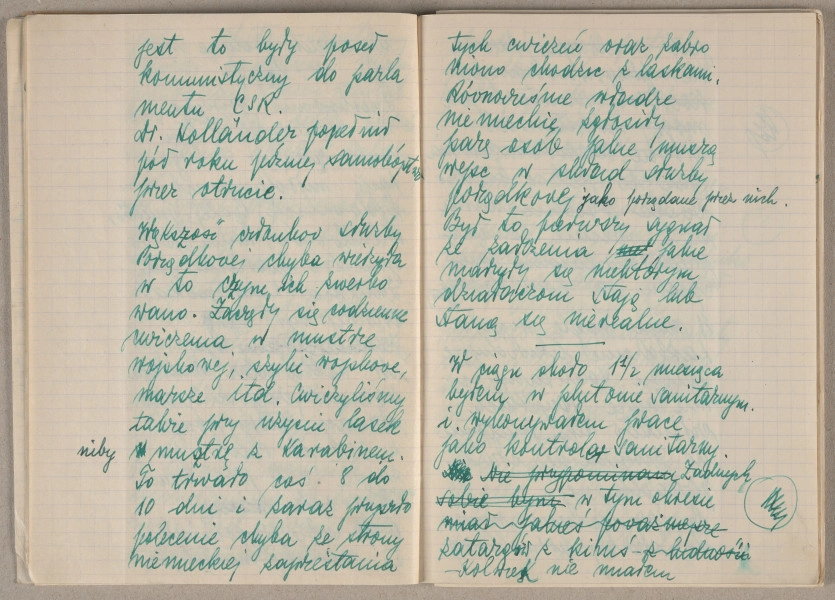 jest to były poseł
komunistyczny do parla
mentu ČSR.
Dr. Holländer popełnił
pół roku później samobójstwo
przez otrucie.
Większość członkov służby
Porządkovej chyba wiedziała
w to czym ich zwerbo
wano. Zaczęły się codzienne
cwiczenia w musztrze
wojskowej, szyki wojskove,
marsze itd. Cwiczyliśmy
także przy użyciu lasek
niby musztrę z Karabinem.
To trwało coś 8 do
10 dni i zaraz przyszło
polecenie chyba ze strony
niemieckiej zaprzestania
tych cwiczeń oraz zabro
niono chodzic z laskami.
Równocześnie władze
niemieckie zgłosiły
parę osób jakie muszą
wejsc w skład służby
Porządkovej jako porządane przez nich.
Był to pierwszy sygnał
że założenia jakie
marzyły się niektórym
działaczom stają lub
staną się nierealne.
W ciągu około 1 1/2 miesiąca
byłem w plutonie sanitarnym.
i wykonywałem prace
jako kontroler sanitarny.
Nie przypominam Żadnych
sobie bym w tym okresie
miał jakieś poważniejsze
zatargów z kimś z ludności
-kolwiek nie miałem